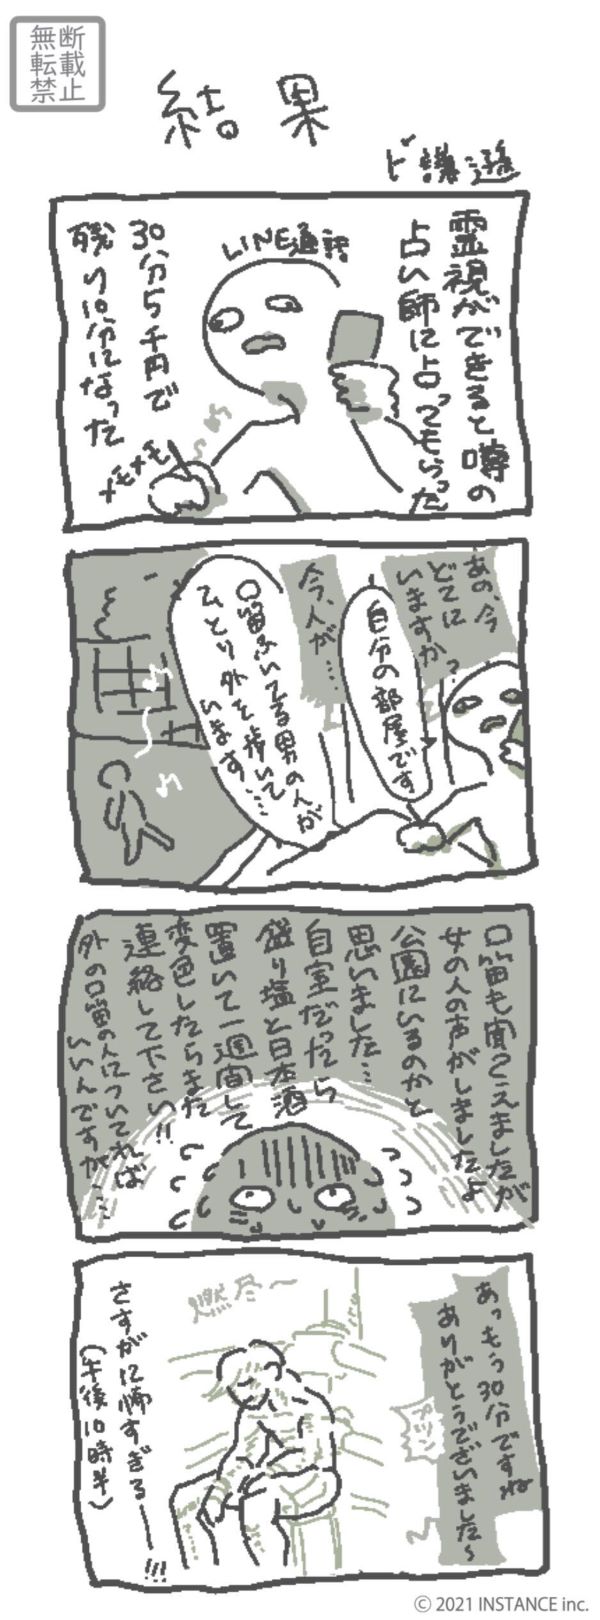 無断
転載
禁止
結果
ド謙遜
霊視ができると噂の
占い師に占ってもらった
LINE通話
30分5千円で
残り10分になった
メモメモ
あの、今
どこに
いますか?
自分の部屋です
今、人が……
口笛ふいてる男の人が
ひとり外を歩いて
います……
口笛も聞こえましたが
女の人の声がしましたよ
公園にいるのかと
思いました…
自室だったら
盛り塩と日本酒
置いて一週間して
変色したらまた
連絡して下さい!!
外の口笛の人についてれば
いいんですが……
あっもう30分ですね
ありがとうございました〜
ガチャン
燃尽〜
さすがに怖すぎるーー!!!
(午後10時半)
© 2021 INSTANCE inc.